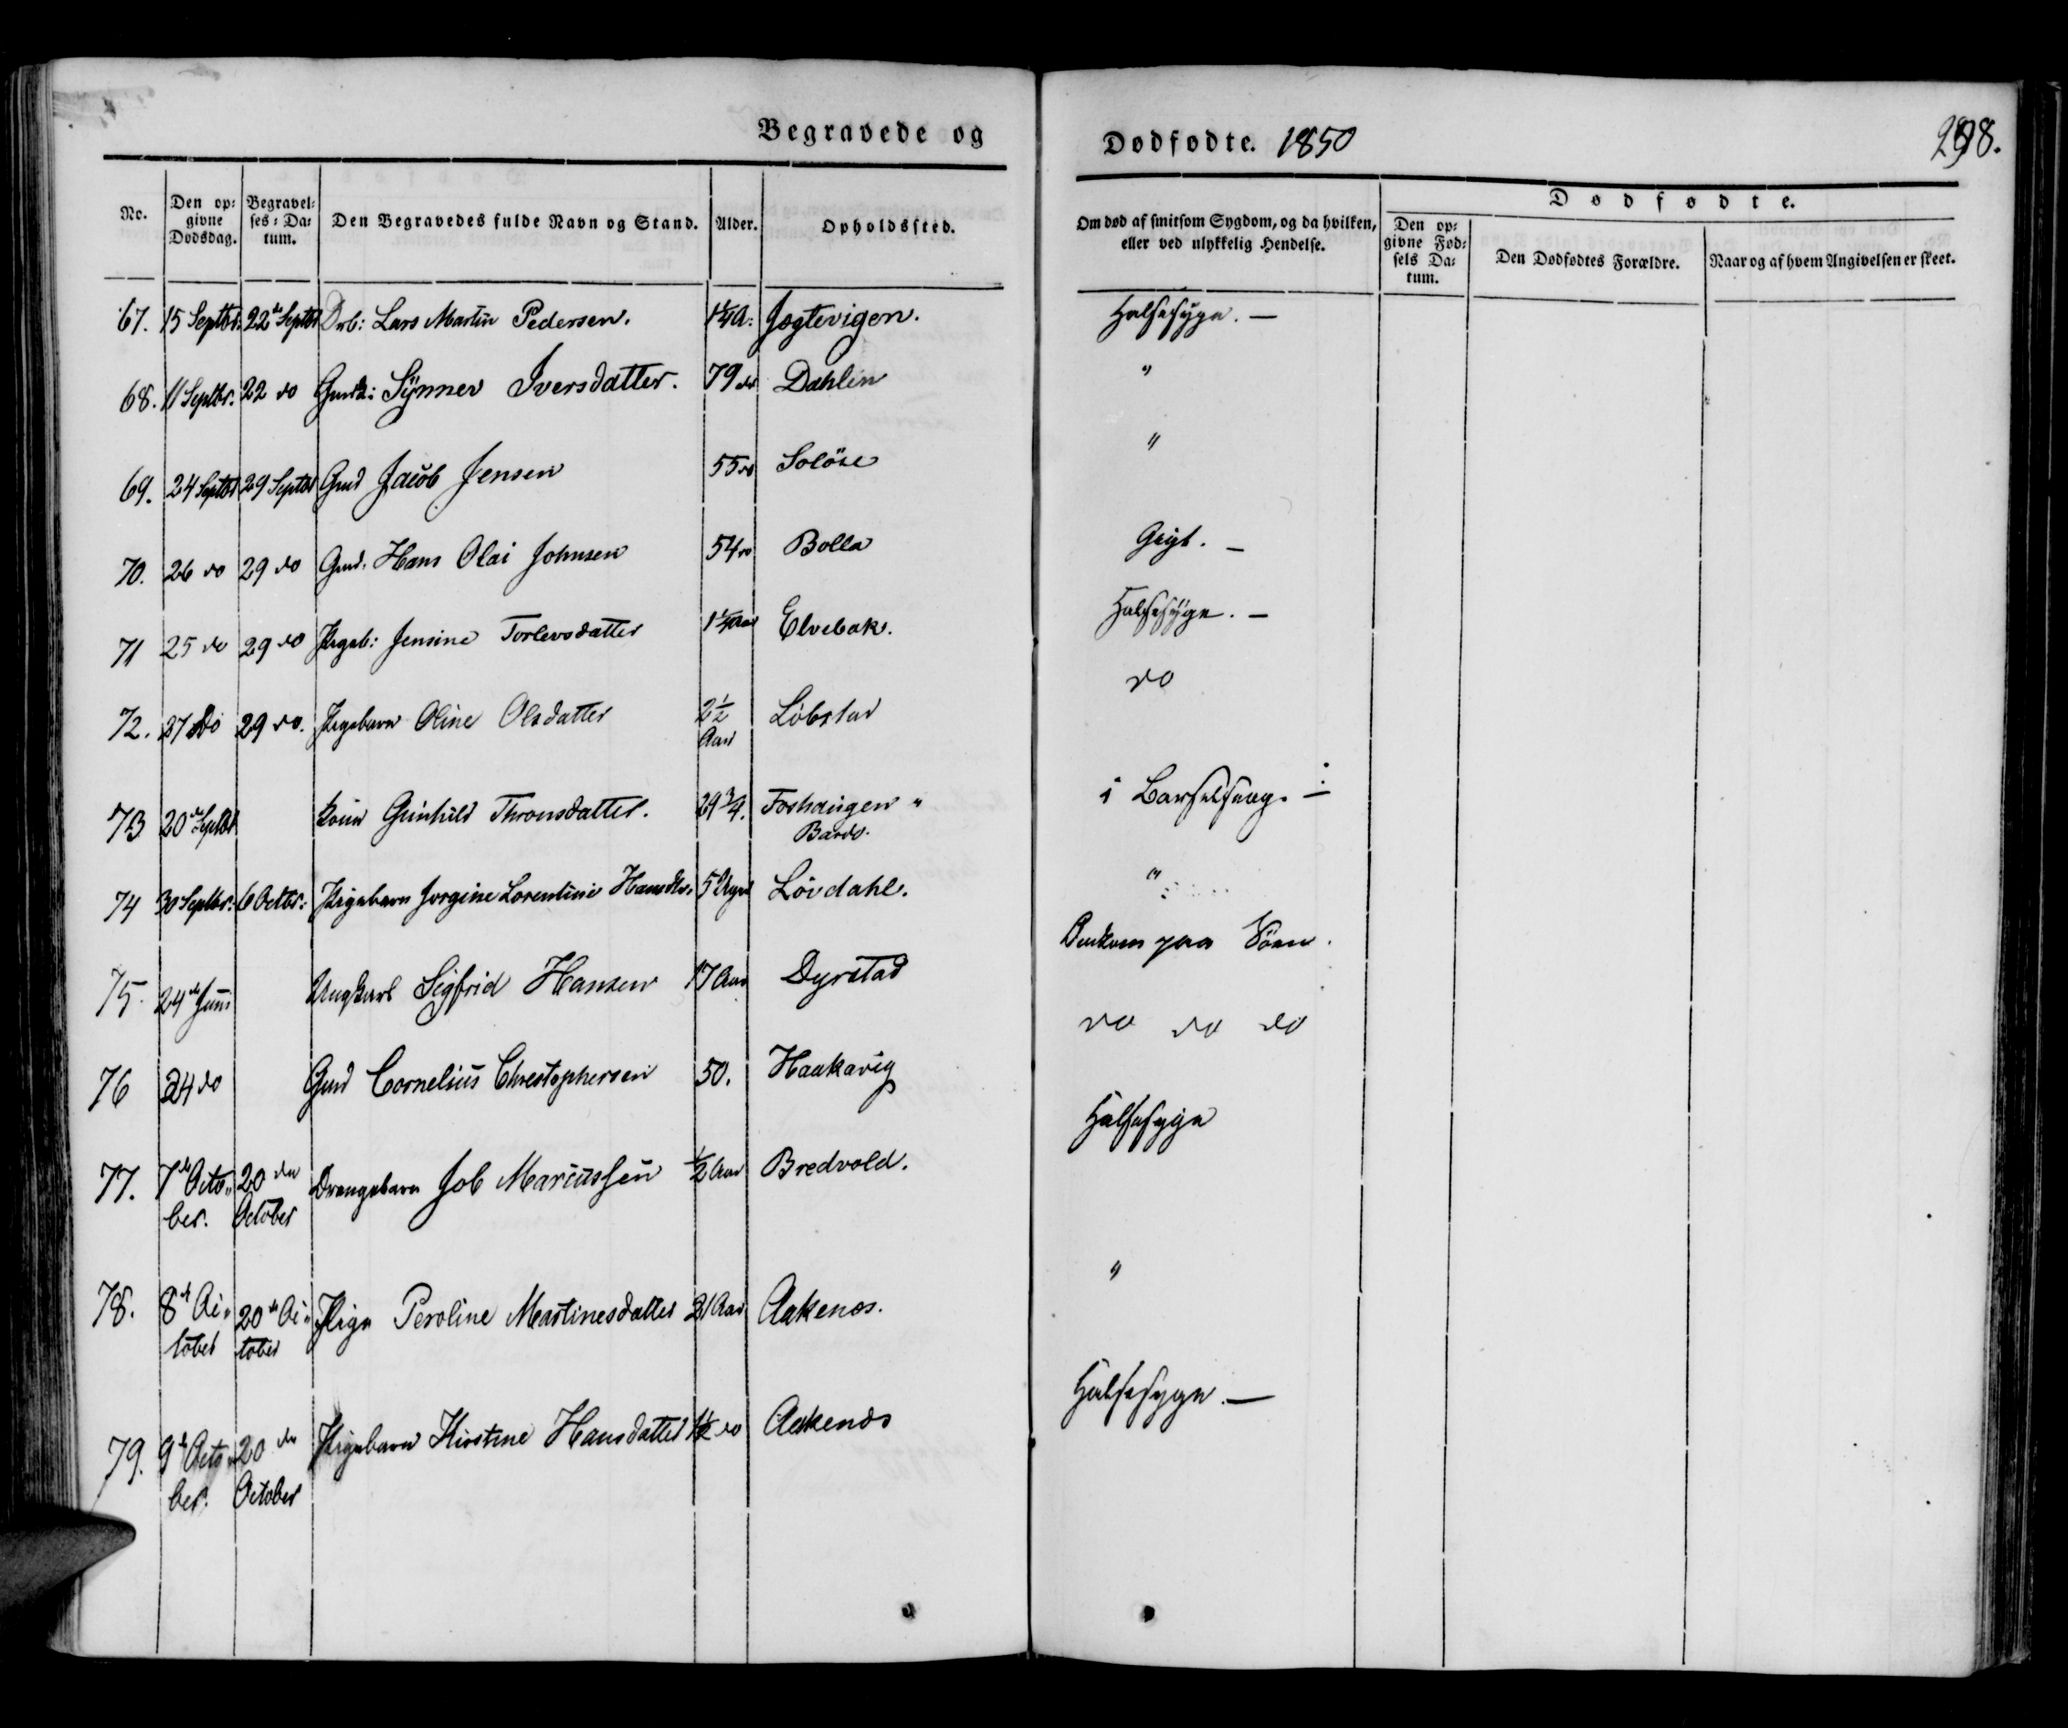 Begravede og
Dødfødte. 1850
298.
No.
Den op-
givne
Dødsdag.
Begravel-
ses-Da-
tum.
Den Begravedes fulde Navn og Stand.
Alder.
Opholdssted.
Om død af smitsom Sygdom, og da hvilken,
eller ved ulykkelig Hendelse.
Dødfødte.
Den op-
givne Fød-
sels Da-
tum.
Den Dødfødtes Forældre.
Naar og af hvem Angivelsen er skeet.
67. 15 Septbr. 22de Septbr Drb: Lars Martin Pedersen. 1¼ A: Jægtevigen. Halssyge. —
68. 11 Septbr. 22 do Gmdk: Synnev Iversdatter. 79 do Dahlen "
69. 24 Septbr 29 Septbr Gmd Jacob Jensen 55 do Soløse "
70. 26 do 29 do Gmd. Hans Olai Johnsen 54 do Bolla Gigt. —
71 25 do 29 do Pigeb: Jensine Torlevsdatter Aar Elvebak. Halssyge. —
72. 27 do 29 do. Pigebarn Oline Olsdatter 2½ Aar Løbstad do
73 20de Septbr Kone Gunhild Thronsdatter. 29¾. Foshaugen "
Bardo.
i Barselseng. —
74 30 Septbr: 6 Octbr: Pigebarn Jorgine Lorentine Hansdtr. 5 Løvdahl. "
75. 24de Juni Ungkarl Sigfrid Hansen 17 Aar Dyrstad Omkom paa Søen.
76 24 do Gmd Cornelius Christophersen 50. Haakavig do do do
77. 7de Octo-
ber.
20de
October
Drengebarn Job Marcussen ½ Aar Bredvold. Halssyge
78. 8de Oc-
tober
20de Oc-
tober
Pige Peroline Martinesdatter 21 Aar Aakenes. "
79. 9de Octo-
ber.
20de
October
Pigebarn Kirstine Hansdatter 1½ do Aakenæs Halssyge. —